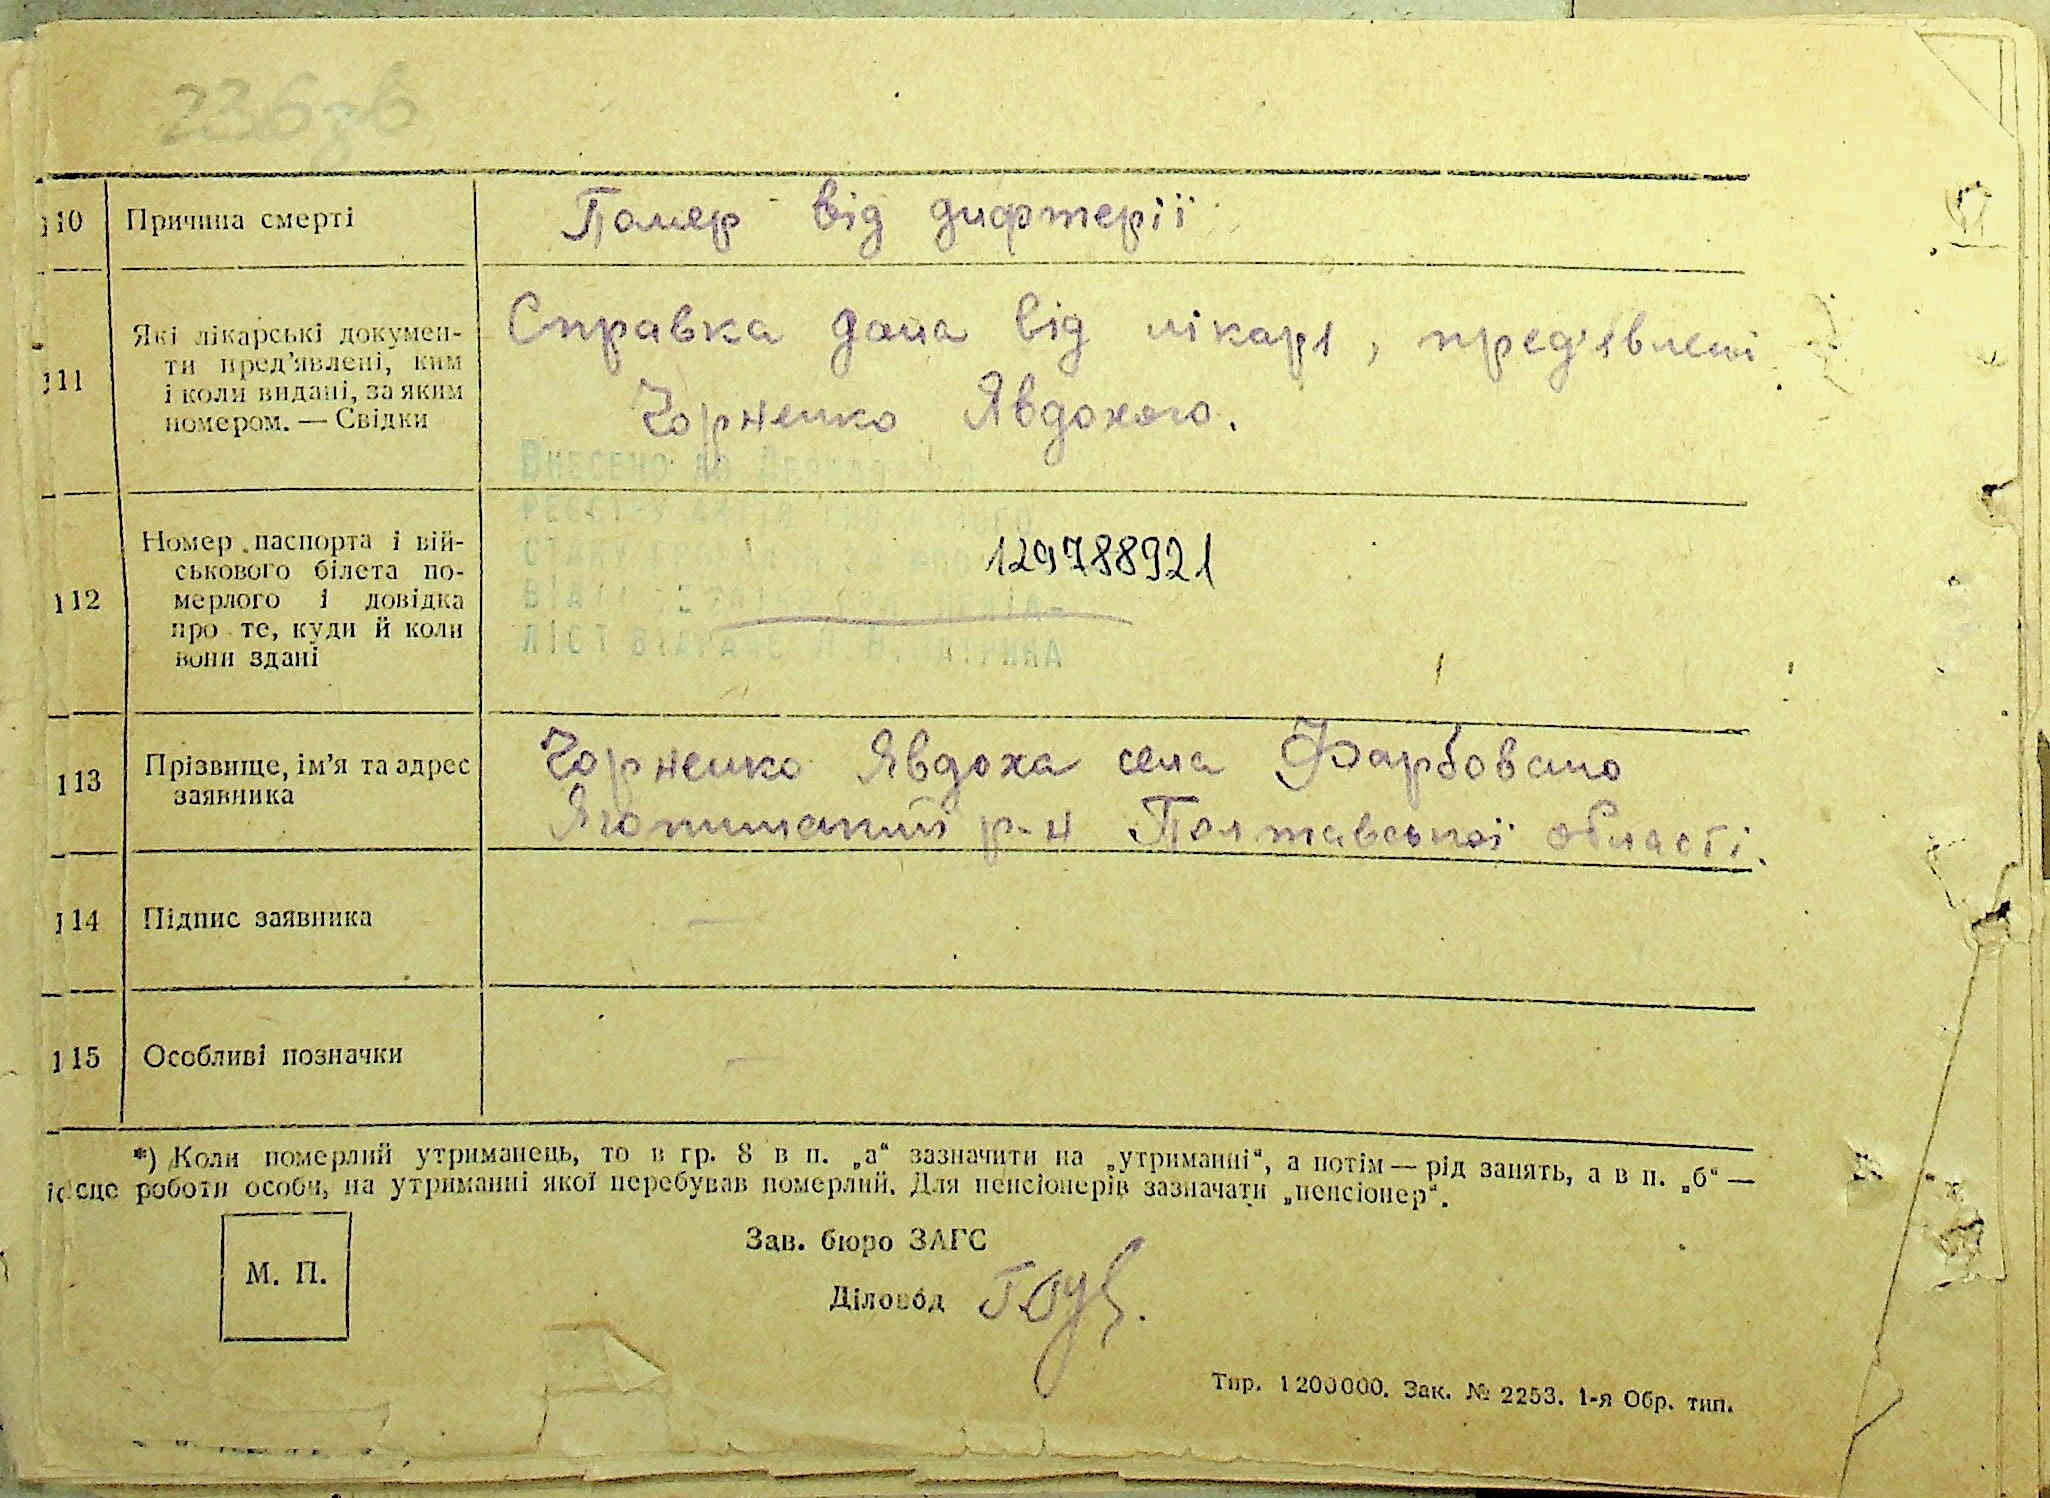 236зв
10 Причина смерті
Помер від дифтерії
11 Які лікарські докумен-
ти пред'явлені, ким
і коли видані, за яким
номером. — Свідки
Справка дана від лікаря, пред'явлені
Чорненко Явдохою.
Внесено до Державного
12 Номер паспорта і вій-
ськового білета по-
мерлого і довідка
про те, куди й коли
вони здані
129788921
13 Прізвище, ім'я та адрес
заявника
Чорненко Явдоха села Фарбовано
Яготинський р-н Полтавської області.
14 Підпис заявника —
15 Особливі позначки —
*) Коли померлий утриманець, то в гр. 8 в п. „а“ зазначити на „утриманні“, а потім — рід занять, а в п. „б“ —
ісце роботи особи, на утриманні якої перебував померлий. Для пенсіонерів зазначати „пенсіонер“.
М. П.
Зав. бюро ЗАГС
Діловод
Тир. 1200000. Зак. № 2253. 1-я Обр. тип.